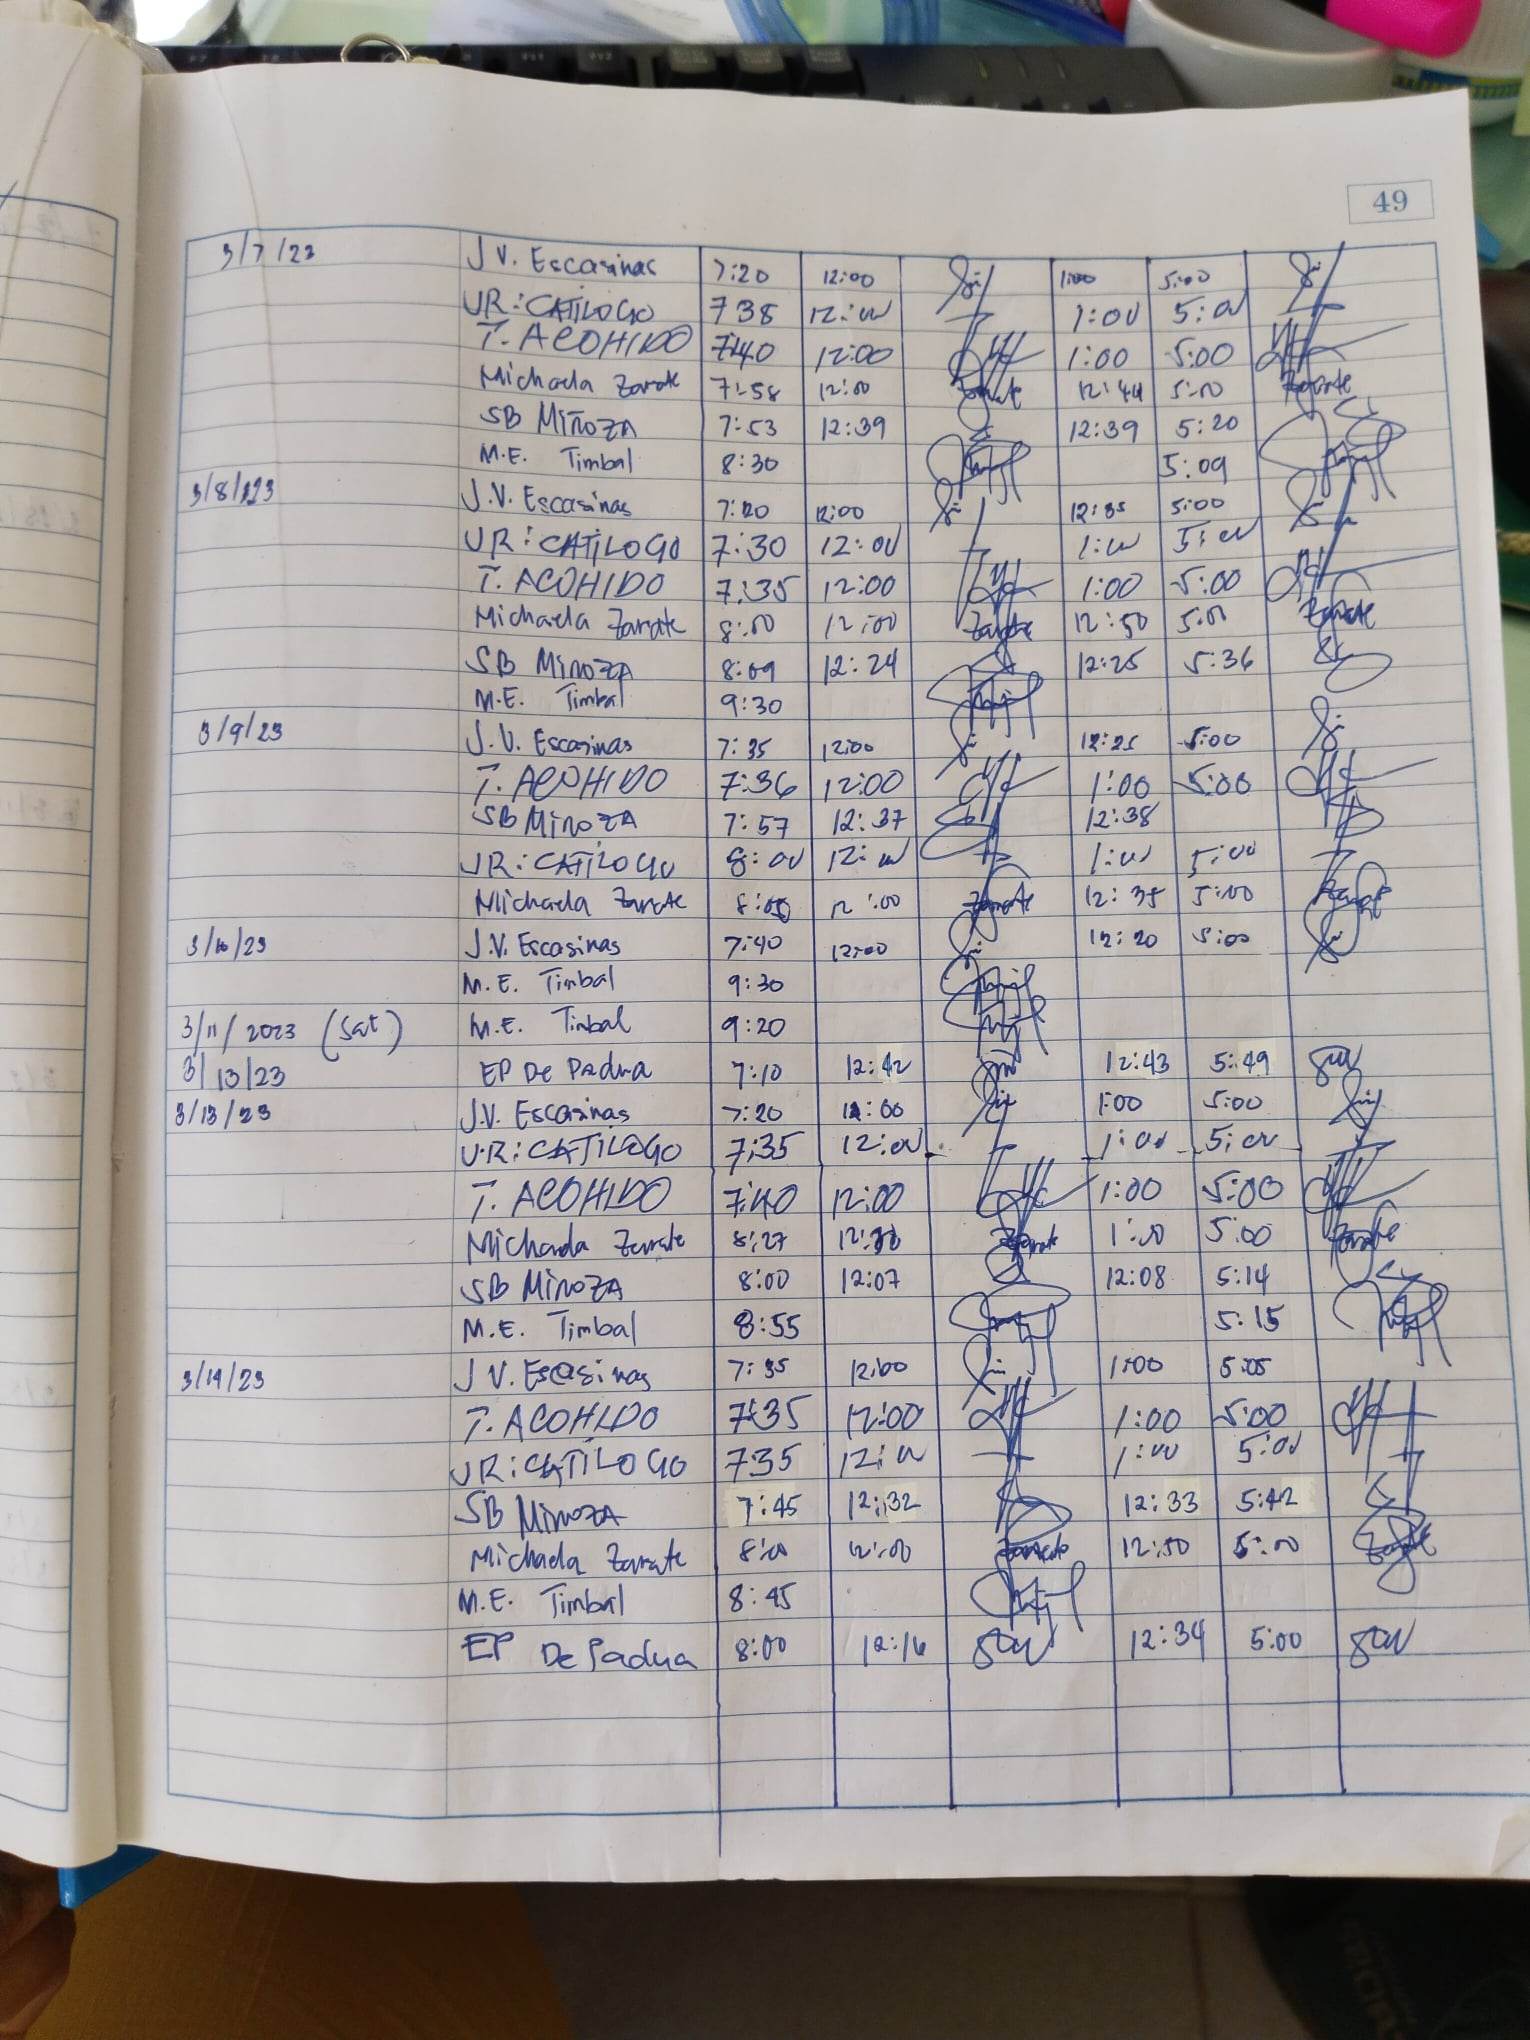 49
3/7/23 J.V. Escasinas 7:20 12:00 1:00 5:00
JR: CATILOGO 738 12:00 1:00 5:00
T. ACOHIDO 7:40 12:00 1:00 5:00
Michaela Zarate 7:58 12:00 Zarate 12:44 5:00 Zarate
SB MIÑOZA 7:53 12:39 12:39 5:20
M.E. Timbal 8:30 5:09
3/8/23 J.V. Escasinas 7:20 12:00 12:35 5:00
JR: CATILOGO 7:30 12:00 1:00 5:00
T. ACOHIDO 7:35 12:00 1:00 5:00
Michaela Zarate 8:00 12:00 Zarate 12:50 5:00 Zarate
SB MIÑOZA 8:09 12:24 12:25 5:36
M.E. Timbal 9:30
3/9/23 J.V. Escasinas 7:35 12:00 12:25 5:00
T. ACOHIDO 7:36 12:00 1:00 5:00
SB MIÑOZA 7:57 12:37 12:38
JR: CATILOGO 8:00 12:00 1:00 5:00
Michaela Zarate 12:00 Zarate 12:35 5:00 Zarate
3/10/23 J.V. Escasinas 7:40 12:00 12:20 5:00
M.E. Timbal 9:30
3/11/2023 (Sat) M.E. Timbal 9:20
3/13/23 EP De Padua 7:10 12:42 12:43 5:49
3/13/23 J.V. Escasinas 7:20 12:00 1:00 5:00
JR: CATILOGO 7:35 12:00 1:00 5:00
T. ACOHIDO 7:40 12:00 1:00 5:00
Michaela Zarate 8:27 Zarate 1:00 5:00 Zarate
SB MIÑOZA 8:00 12:07 12:08 5:14
M.E. Timbal 8:55 5:15
3/14/23 J.V. Escasinas 7:35 12:00 1:00 5:05
T. ACOHIDO 7:35 12:00 1:00 5:00
JR: CATILOGO 735 12:00 1:00 5:00
SB MIÑOZA 7:45 12:32 12:33 5:42
Michaela Zarate 8:00 12:00 Zarate 12:50 5:00 Zarate
M.E. Timbal 8:45
EP De Padua 8:00 12:16 12:34 5:00